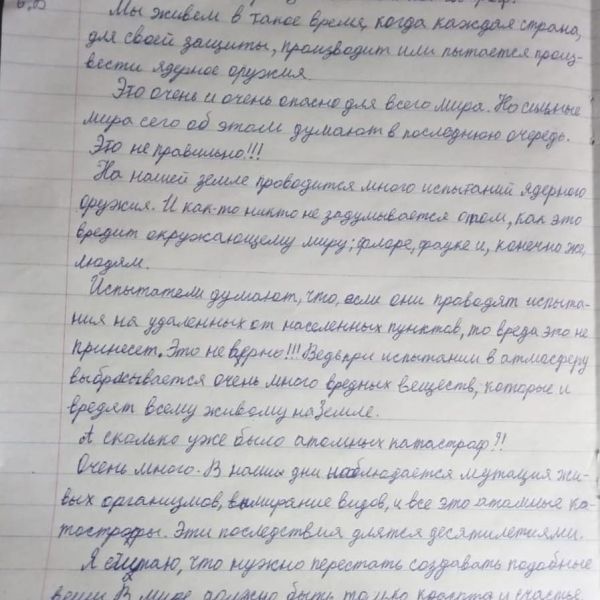 Мы живем в такое время, когда каждая страна,
для своей защиты, производит или пытается произ-
вести ядерное оружия.
Это очень и очень опасно для всего мира. Но сильные
мира сего об этом думают в последнюю очередь.
Это не правильно!!!
На нашей земле проводится много испытаний ядерного
оружия. И как-то никто не задумывается о том, как это
вредит окружающему миру; флоре, фауне и, конечно же,
людям.
Испытатели думают, что, если они проводят испыта-
ния на удаленных от населенных пунктов, то вреда это не
принесет. Это не верно!!! Ведь при испытании в атмосферу
выбрасывается очень много вредных веществ, которые и
вредят всему живому на Земле.
А сколько уже было атомных катастроф?!
Очень много. В наши дни наблюдается мутация жи-
вых организмов, вымирание видов, и все это атомные ка-
тострофы. Эти последствия длятся десятилетиями.
Я считаю, что нужно перестать создавать подобные
вещи. В мире должно быть только красота и счастье